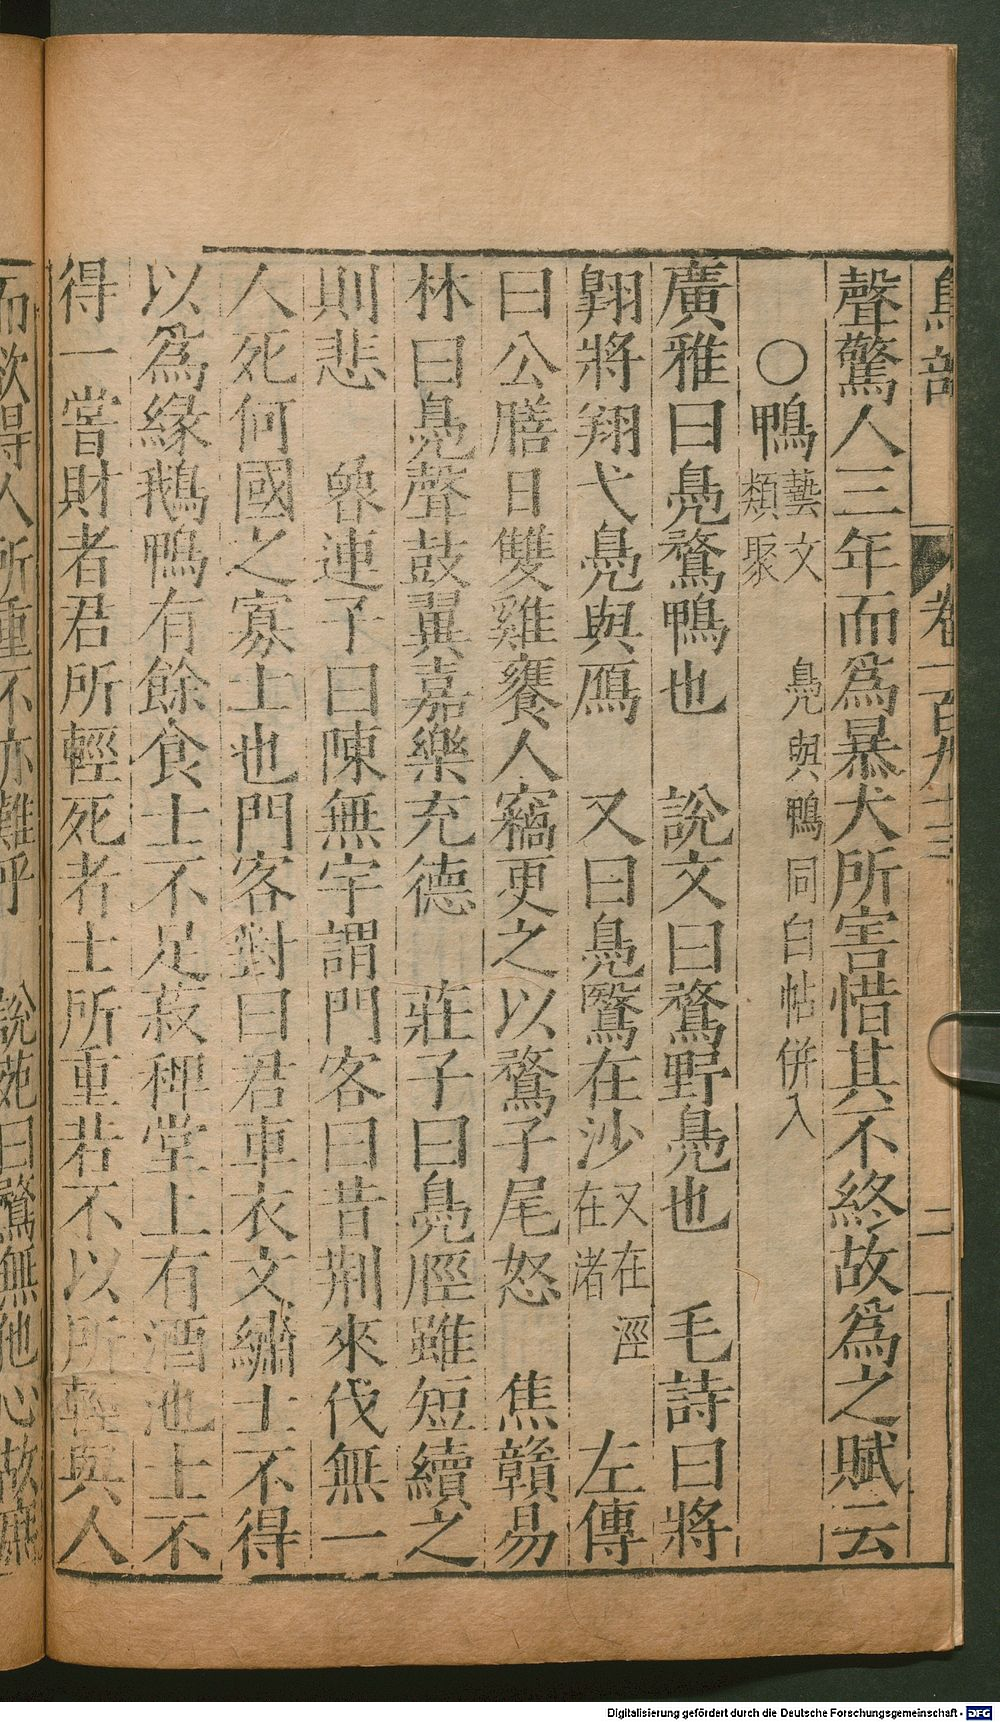 鳥部 卷一百九十三 二
聲驚人三年而爲暴犬所害惜其不終故爲之賦云
○鴨藝文類聚 鳧與鴨同白帖併入
廣雅曰鳧鶩鴨也 說文曰鶩野鳧也 毛詩曰將
翺將翔弋鳧與鴈 又曰鳧鷖在沙又在涇在渚 左傳
曰公膳日雙雞饔人竊更之以鶩子尾怒 焦贛易
林曰鳧聲鼓翼嘉樂充德 莊子曰鳧脛雖短續之
則悲 魯連子曰陳無宇謂門客曰昔荆來伐無一
人死何國之寡士也門客對曰君車衣文繡士不得
以爲緣鵝鴨有餘食士不足菽稗堂上有酒池士不
得一嘗財者君所輕死者士所重君不以所輕與人
而欲得人所重不亦難乎 說苑曰鶩無他心故庶
Digitalisierung gefördert durch die Deutsche Forschungsgemeinschaft - DFG